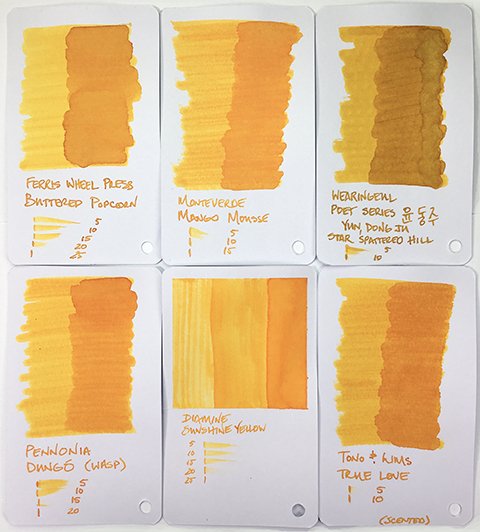 FERRIS WHEEL PRESS
BUTTERED POPCORN
5
10
15
20
25
MONTEVERDE
MANGO MOUSSE
5
10
15
WEARINGEUL
POET SERIES 윤동주
YUN, DONG JU
STAR SPATTERED HILL
5
10
PENNONIA
DUNGÓ (WASP)
5
10
15
20
DIAMINE
SUNSHINE YELLOW
5
10
15
20
25
TONO & LIMS
TRUE LOVE
5
10
(SCENTED)